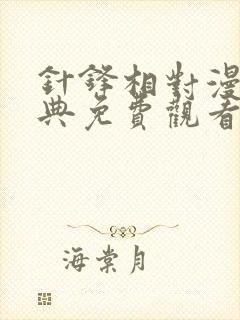 針鋒相對漫
典免費觀看
海棠月